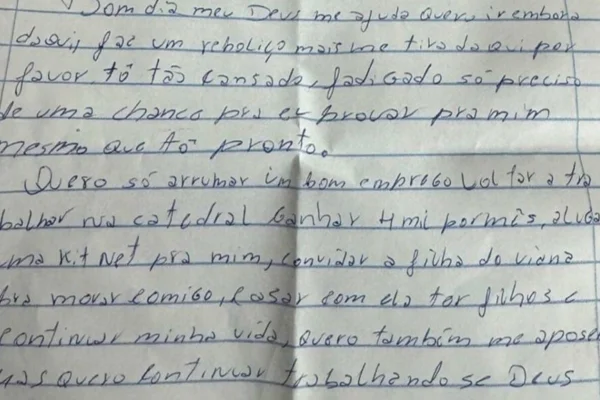 Bom dia meu Deus me ajuda quero ir embora
daqui, faz um reboliço mais me tira daqui por
favor tô tão cansada, fadigado só preciso
de uma chance pra eu provar pra mim
mesmo que tô pronto.
Quero só arrumar um bom emprego voltar a tra
balhar na catedral ganhar 4 mil por mês, aluga
uma KitNet pra mim, convidar a filha do viana
pra morar comigo, casar com ela ter filhos e
continuar minha vida, quero também me apose
mas quero continuar trabalhando se Deus